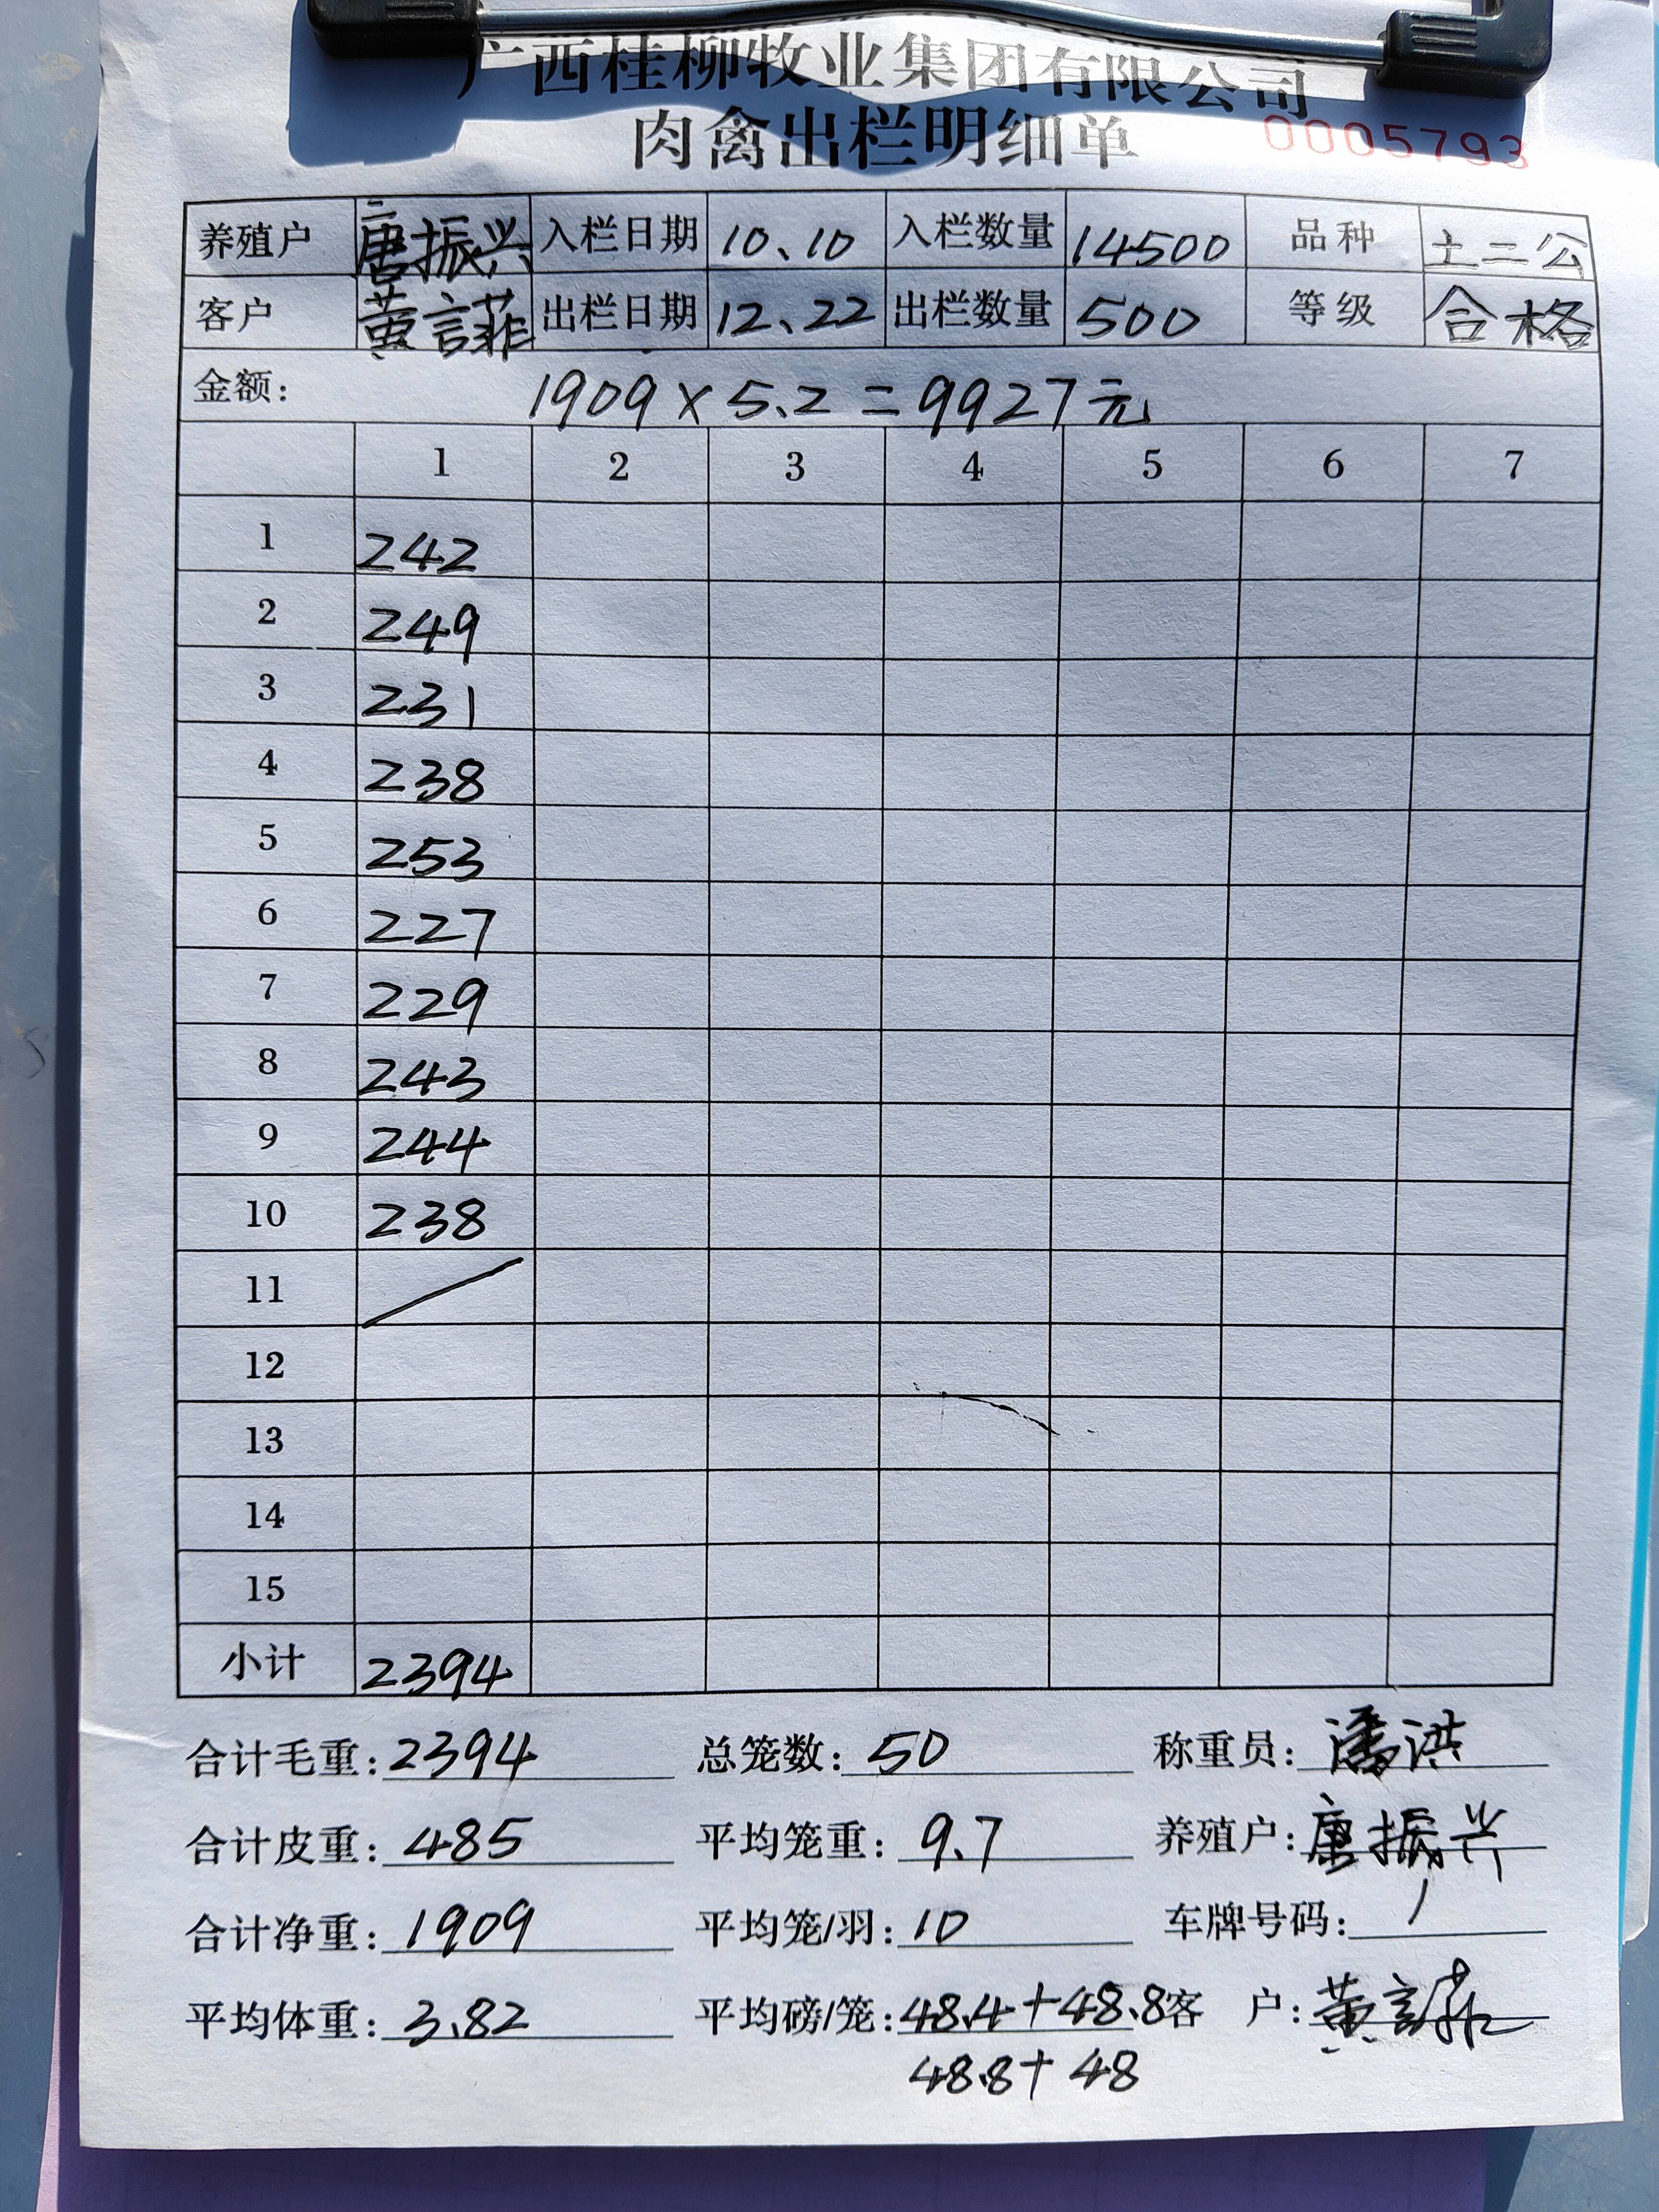 广西桂柳牧业集团有限公司
肉禽出栏明细单 0005793
养殖户 二唐振兴 入栏日期 10、10 入栏数量 14500 品种 土二公
客户 黄言菲 出栏日期 12、22 出栏数量 500 等级 合格
金额： 1909×5.2=9927元
1 2 3 4 5 6 7
1 242
2 249
3 231
4 238
5 253
6 227
7 229
8 243
9 244
10 238
11
12
13
14
15
小计 2394
合计毛重：2394 总笼数：50 称重员：潘洪
合计皮重：485 平均笼重：9.7 养殖户：唐振兴
合计净重：1909 平均笼/羽：10 车牌号码：/
平均体重：3.82 平均磅/笼：48.4+48.8 客 户：黄言菲
48.8+48